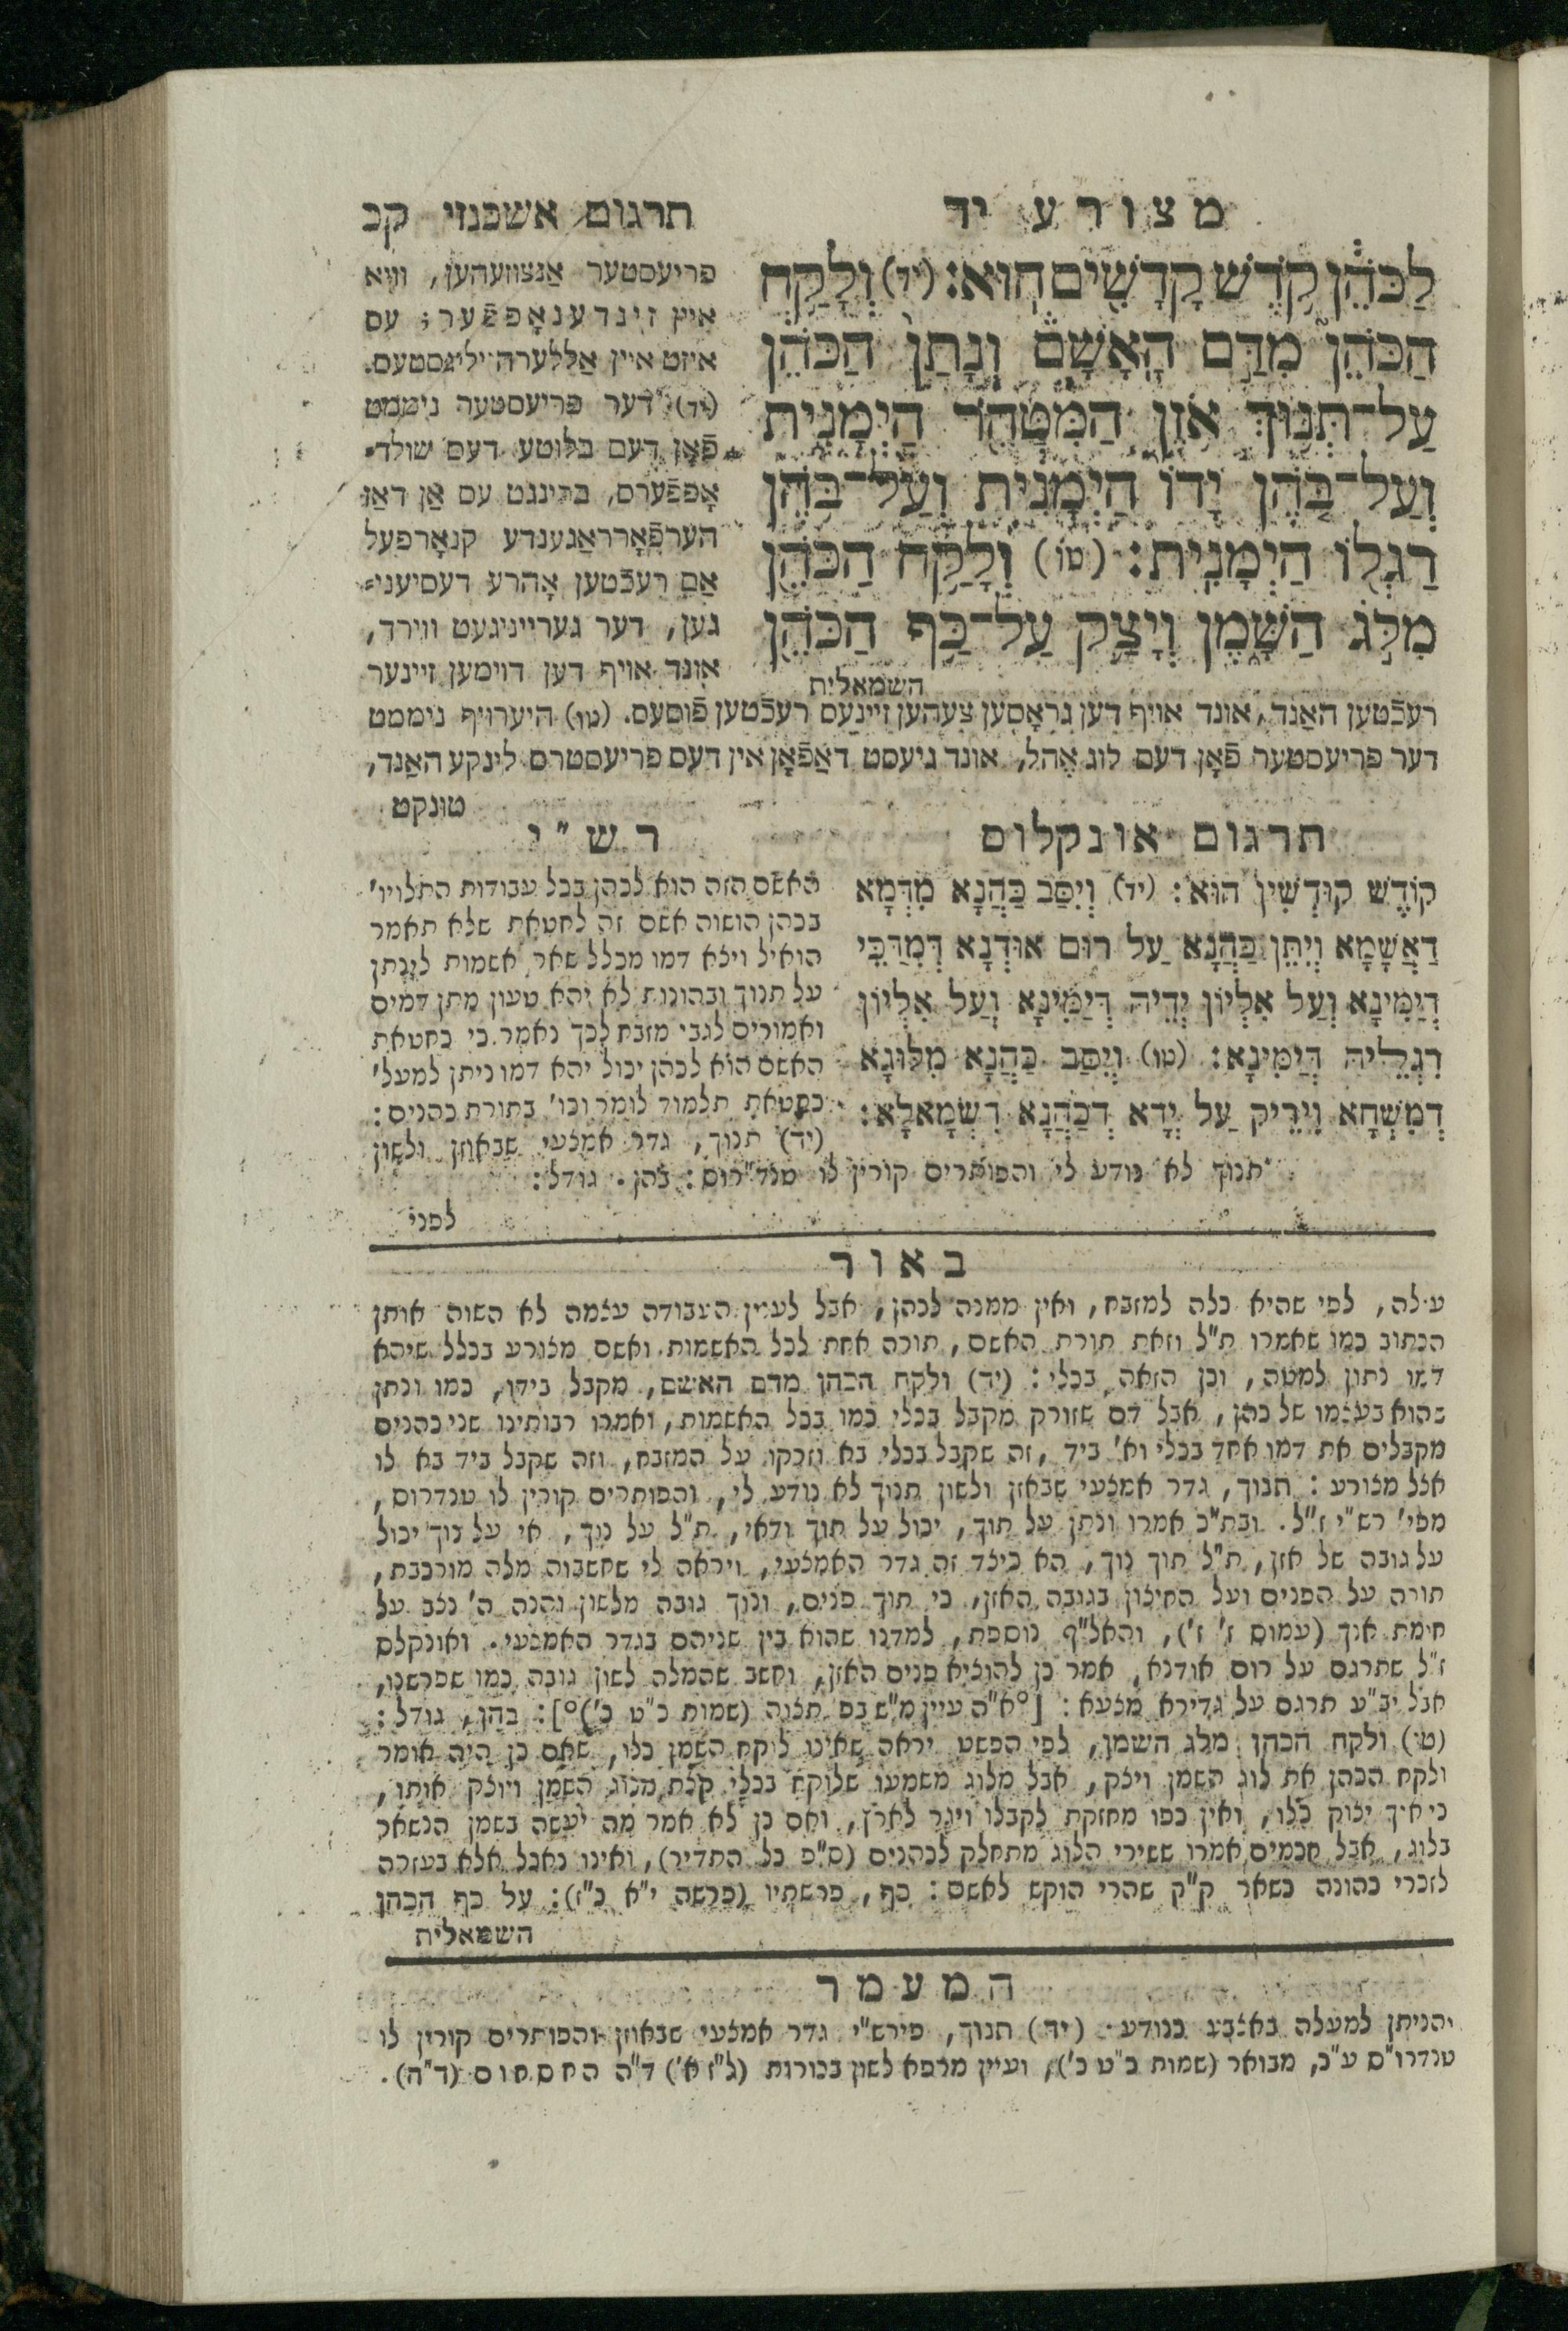 מצורע יד
לַכֹּהֵ֔ן קֹ֥דֶשׁ קָֽדָשִׁ֖ים הֽוּא: (יד) וְלָקַ֣ח
הַכֹּהֵן֮ מִדַּ֣ם הָֽאָשָׁם֒ וְנָתַן֙ הַכֹּהֵ֔ן
עַל־תְּנ֛וּךְ אֹ֥זֶן הַמִּטַּהֵ֖ר הַיְמָנִ֑ית
וְעַל־בֹּ֤הֶן יָדוֹ֙ הַיְמָנִ֔ית וְעַל־בֹּ֥הֶן
רַגְל֖וֹ הַיְמָנִֽית: (טו) וְלָקַ֥ח הַכֹּהֵ֖ן
מִלֹּ֣ג הַשָּׁ֑מֶן וְיָצַ֛ק עַל־כַּ֥ף הַכֹּהֵ֖ן
השמאלית
תרגום אשכנזי קכ
פריעסטער אַנצוזעהען, וויא
איין זינדענאָפפֿער; עם
איזט איין אַללערהייליגסטעס.
(יד) דער פריעסטער ניממט
פֿאָן דעם בלוטע דעס שולד־
אָפפֿערס, ברינגט עס אַן דאַז
הערפֿאָרראַגענדע קנאָרפעל
אַם רעכֿטען אָהרע דעסיעני־
גען, דער גערייניגעט ווירד,
אונד אויף דען דוימען זיינער
רעכֿטען האַנד, אונד אויף דען גראָסען צעהען זיינעס רעכֿטען פֿוסעס. (טו) היערויף ניממט
דער פריעסטער פֿאָן דעם לוג אֶהל, אונד גיעסט דאַפֿאָן אין דעס פריעסטרס לינקע האַנד,
טונקט
תרגום אונקלוס
קוֹדֶשׁ קוּדְשִׁין הוּא: (יד) וְיִסַּב כַּהֲנָא מִדְּמָא
דַאֲשָׁמָא וְיִתֵּן כַּהֲנָא עַל רוּם אוּדְנָא דְּמִדַּכֵּי
דְיַמִּינָא וְעַל אִלְיוֹן יְדֵיהּ דְּיַמִּינָא וְעַל אִלְיוֹן
רִגְלֵיהּ דְּיַמִּינָא: (טו) וְיִסַּב כַּהֲנָא מִלּוּגָא
דְמִשְׁחָא וִירִיק עַל יְדָא דְכַהֲנָא דִשְׂמָאלָא:
רש"י
האשם הזה הוא לכהן בכל עבודות התלויו'
בכהן הושוה אשם זה לחטאת שלא תאמר
הואיל ויצא דמו מכלל שאר אשמות לינתן
על תנוך ובהונות לא יהא טעון מתן דמים
ואמורים לגבי מזבח לכך נאמר כי כחטאת
האשם הוא לכהן יכול יהא דמו ניתן למעל'
כחטאת תלמוד לומר וכו' בתורת כהנים:
(יד) תנוך, גדר אמצעי שבאוזן ולשון
תנוך לא נודע לי והפותרים קורין לו טנד"רוס: בהן. גודל:
לפני
באור
עולה, לפי שהיא כלה למזבח, ואין ממנה לכהן, אבל לענין העבודה עצמה לא השוה אותן
הכתוב כמו שאמרו ת"ל וזאת תורת האשם, תורה אחת לכל האשמות ואשם מצורע בכלל שיהא
דמו נתון למטה, וכן הזאה בכלי: (יד) ולקח הכהן מדם האשם, מקבל בידו, כמו ונתן
שהוא בעצמו של כהן, אבל דם שזורק מקבל בכלי כמו בכל האשמות, ואמרו רבותינו שני כהנים
מקבלים את דמו אחד בכלי וא' ביד, זה שקבל בכלי בא וזרקו על המזבח, וזה שקבל ביד בא לו
אצל מצורע: תנוך, גדר אמצעי שבאזן ולשון תנוך לא נודע לי, והפותרים קורין לו טנדרוס,
מפי' רש"י ז"ל. ובת"כ אמרו ונתן על תוך, יכול על תוך ודאי, ת"ל על נוך, אי על נוך יכול
על גובה של אזן, ת"ל תוך נוך, הא כיצד זה גדר האמצעי, ויראה לי שחשבוה מלה מורכבת,
תורה על הפנים ועל החיצון בגובה האזן, כי תוך פנים, ונוך גובה מלשון והנה ה' נצב על
חימת אנך (עמוס ז' ז'), והאל"ף נוספת, למדנו שהוא בין שניהם בגדר האמצעי. ואונקלס
ז"ל שתרגם על רום אודנא, אמר כן להוציא פנים האזן, וחשב שהמלה לשון גובה כמו שפרשנו,
אבל יב"ע תרגם על גדירא מצעא: [°א"ה עיין מ"ש בפ' תצוה (שמות כ"ט כ')°]: בהן, גודל:
(טו) ולקח הכהן מלג השמן, לפי הפשט יראה שאינו לוקח השמן כלו, שאם כן היה אומר
ולקח הכהן את לוג השמן ויצק, אבל מלוג משמעו שלוקח בכלי קצת מלוג השמן ויוצק אותו,
כי איך יצוק כלו, ואין כפו מחזקת לקבלו ויגר לארץ, ואם כן לא אמר מה יעשה בשמן הנשאר
בלוג, אבל חכמים אמרו ששירי הלוג מתחלק לכהנים (ס"פ כל התדיר), ואינו נאכל אלא בעזרה
לזכרי כהונה כשאר ק"ק שהרי הוקש לאשם: כף, פרשתיו (פרשה י"א כ"ז): על כף הכהן
השמאלית
המעמר
והניתן למעלה באצבע כנודע. (יד) תנוך, פירש"י גדר אמצעי שבאוזן והפותרים קורין לו
טנדרו"ס ע"כ, מבואר (שמות כ"ט כ'), ועיין מרפא לשון בכורות (ל"ז א') ד"ה החסחוס (ד"ה).